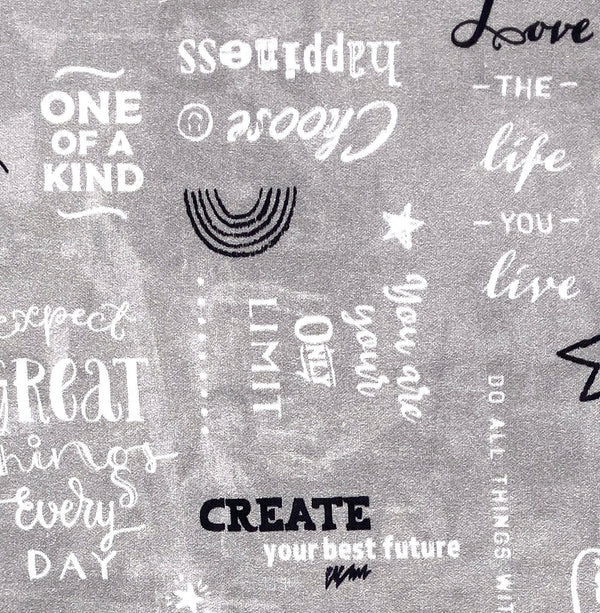 Love
THE
life
YOU
live
Choose
happiness
ONE
OF A
KIND
You are
your
ONLY
LIMIT
expect
GREAT
things
Every
DAY
CREATE
your best future
DO ALL THINGS WIT